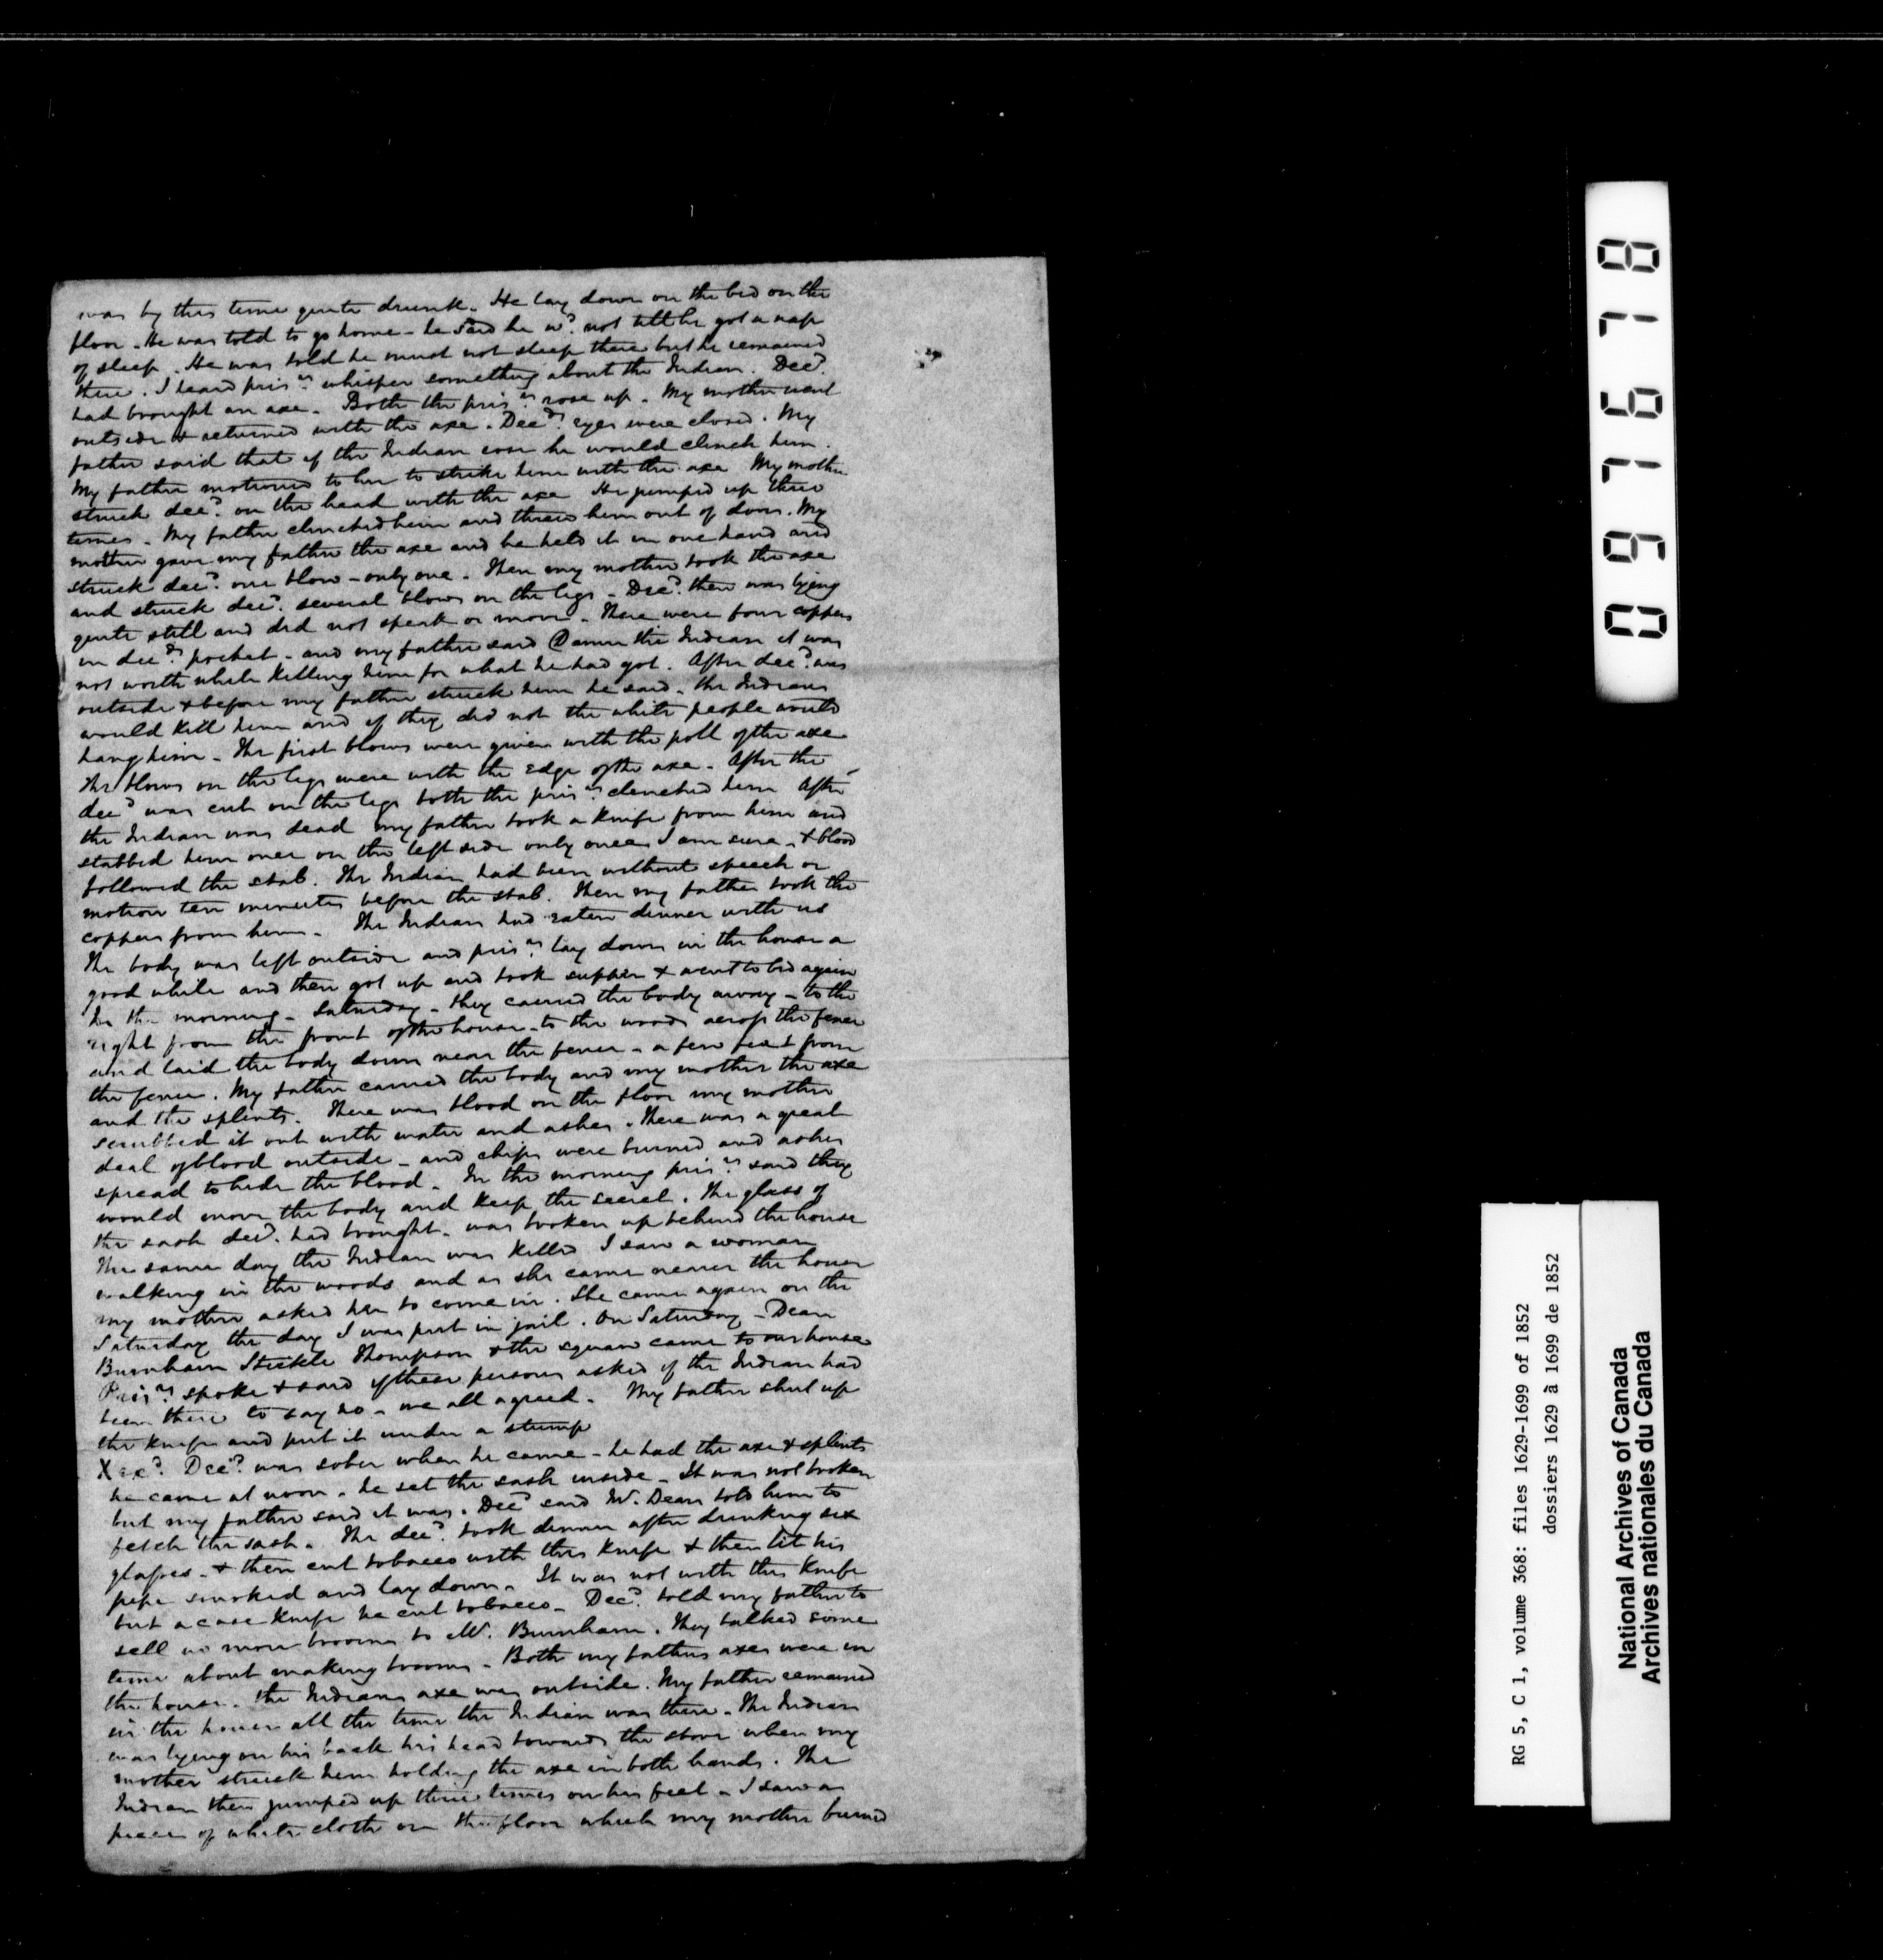 was by this time quite drunk. He lay down on the bed on the
floor. He was told to go home - he said he wd. not till he got a nap
of sleep. He was told he must not sleep there but he remained
there. I heard prisrs. whisper something about the Indian. Decd.
had brought an axe. Both the prisrs. rose up. My mother went
outside & returned with the axe. Decds. eyes were closed. My
father said that if the Indian rose he would clinch him.
My father motioned to her to strike him with the axe My mother
struck decd. on the head with the axe He jumped up three
times. My father clinched him and threw him out of doors. My
mother gave my father the axe and he held it in one hand and
struck decd. one blow - only one. Then my mother took the axe
and struck decd. several blows on the legs - Decd. then was lying
quite still and did not speak or move. There were four coppers
in decds. pocket - and my father said Damn the Indian it was
not worth while killing him for what he had got. After decd. was
outside & before my father struck him he said - the Indians
would kill him and if they did not the white people would
hang him. The first blows were given with the poll of the axe
The blows on the legs were with the edge of the axe. After the
decd was cut on the legs both the prisrs. clenched him After
the Indian was dead my father took a knife from him and
stabbed him once on the left side only once I am sure. & blood
followed the stab. The Indian had been without speech or
motion ten minutes before the stab. Then my father took the
coppers from him. The Indian had eaten dinner with us
The body was left outside and prisrs. lay down in the house a
good while and then got up and took supper & went to bed again
In the morning - Saturday - they carried the body away - to the
right from the front of the house - to the woods across the fence
and laid the body down near the fence - a few feet from
the fence. My father carried the body and my mother the axe
and the splints. There was blood on the floor my mother
scrubbed it out with water and ashes. There was a great
deal of blood outside - and chips were burned and ashes
spread to hide the blood. In the morning prisrs. said they
would move the body and keep the secret. The glass of
the sash decd. had brought - was broken up behind the house
The same day the Indian was killed I saw a woman
walking in the woods and as she came nearer the house
my mother asked her to come in. She came again on the
Saturday the day I was put in jail. On Saturday - Dean
Burnham Stickle Thompson & the squaw came to our house
Prisrs. spoke & said if these persons asked if the Indian had
been there to say no - we all agreed. My father shut up
the knife and put it under a stump
Xexd. Decd. was sober when he came - he had the axe & splints
he came at noon - he set the sash inside - It was not broken
but my father said it was. Decd said Mr. Dean told him to
fetch the sash. The decd. took dinner after drinking six
glasses - & then cut tobacco with this knife & then lit his
pipe smoked and lay down. It was not with this knife
but a case knife he cut tobacco - Decd. told my father to
sell no more brooms to Mr. Burnham. They talked some
time about making brooms - Both my fathers axes were in
the house. the Indians axe was outside. My father remained
in the house all the time the Indian was there. The Indian
was lying on his back his head towards the stove when my
mother struck him holding the axe in both hands. The
Indian then jumped up three times on his feet - I saw a
piece of white cloth on the floor which my mother burned
097678
RG 5, C 1, volume 368: files 1629-1699 of 1852
dossiers 1629 à 1699 de 1852
National Archives of Canada
Archives nationales du Canada